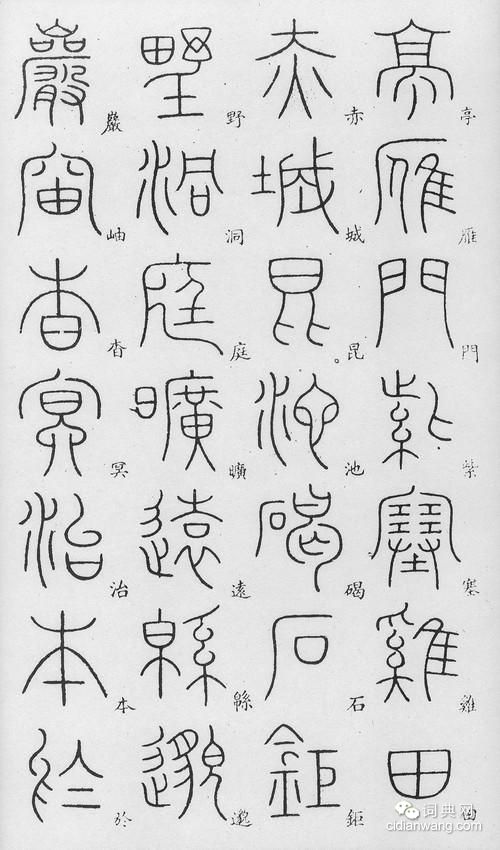 亭雁門紫塞雞田
赤城昆池碣石鉅
野洞庭曠遠緜邈
巖岫杳冥治本於
词典网
cidianwang.com